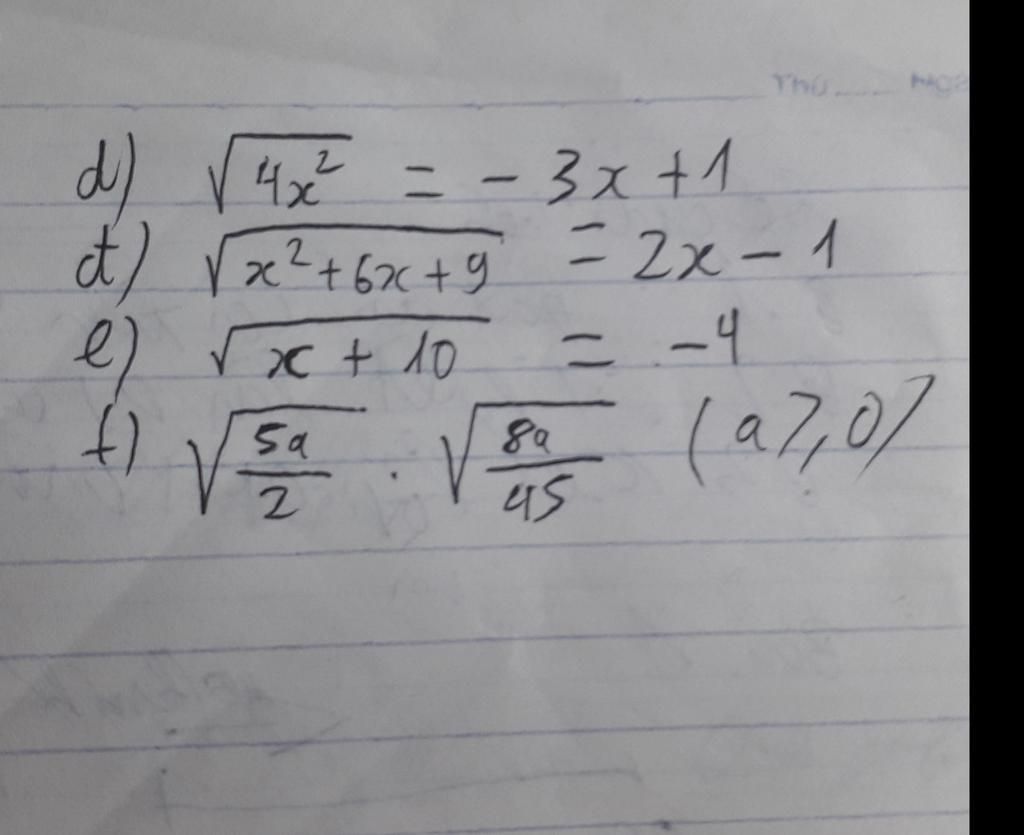 d) √(4x²) = - 3x + 1
đ) √(x² + 6x + 9) = 2x - 1
e) √(x + 10) = -4
f) √(5a/2) . √(8a/45) (a ≥ 0)